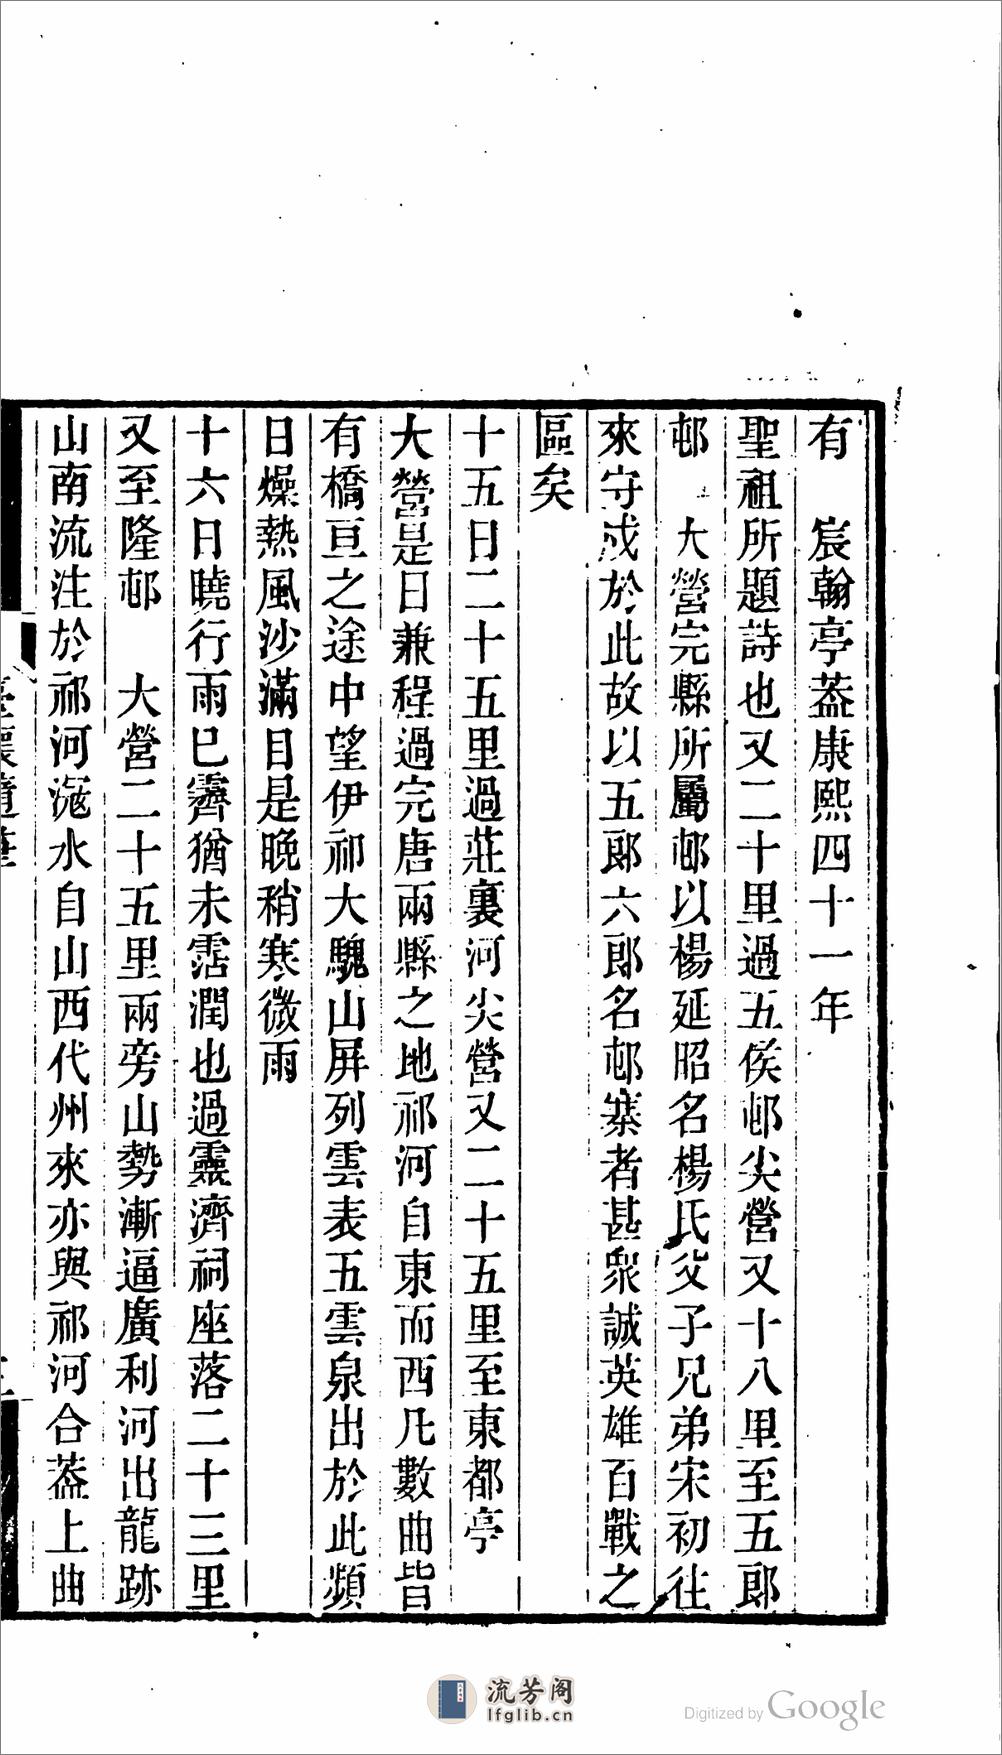 有　宸翰亭葢康熙四十一年
聖祖所題詩也又二十里過五侯邨尖營又十八里至五郞
邨　大營完縣所屬邨以楊延昭名楊氏父子兄弟宋初往
來守戍於此故以五郞六郞名邨寨者甚衆誠英雄百戰之
區矣
十五日二十五里過莊裏河尖營又二十五里至東都亭
大營是日兼程過完唐兩縣之地祁河自東而西凡數曲皆
有橋亘之途中望伊祁大騩山屏列雲表五雲泉出於此頻
日燥熱風沙滿目是晚稍寒微雨
十六日曉行雨已霽猶未霑潤也過靈濟祠座落二十三里
又至隆邨　大營二十五里兩旁山勢漸逼廣利河出龍跡
山南流注於祁河滱水自山西代州來亦與祁河合葢上曲
臺懷隨筆
流芳阁
lfglib.cn
Digitized by Google